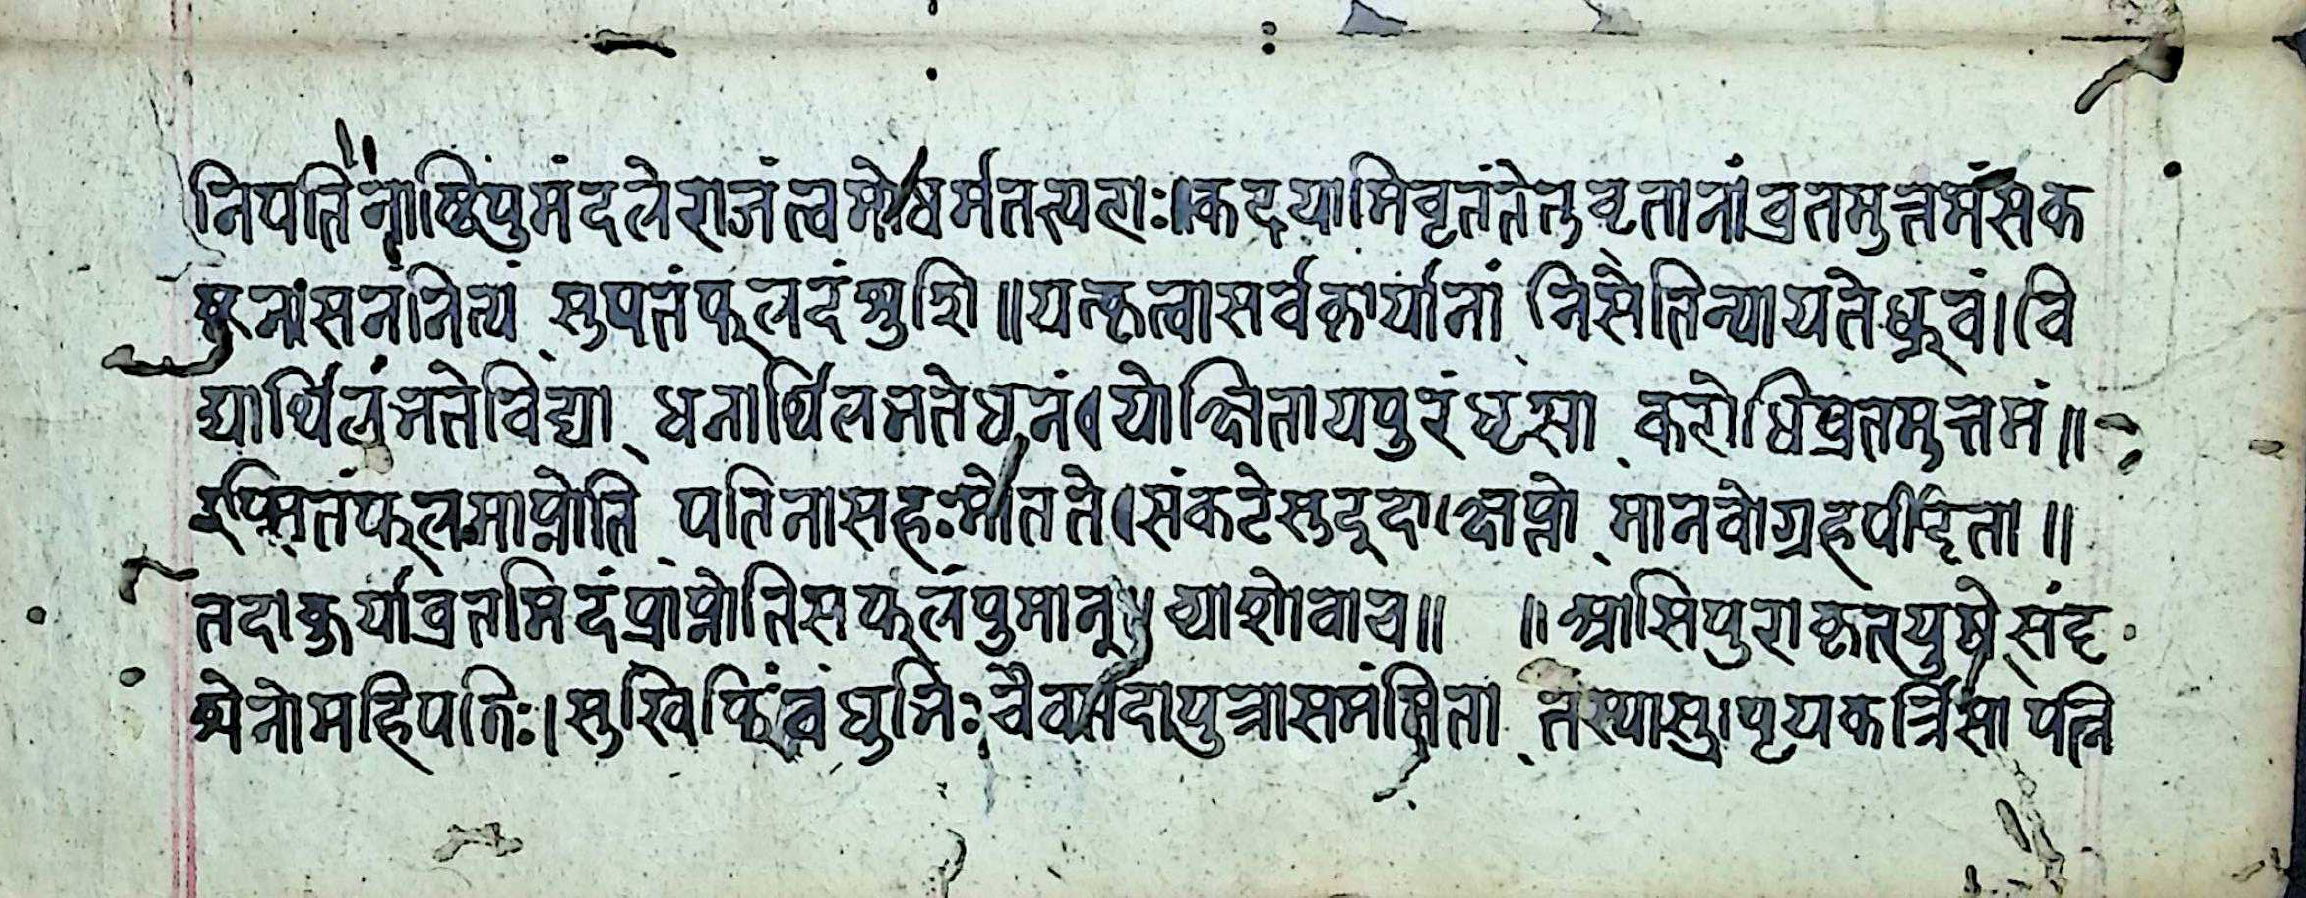 निपतिनाष्टिपुमंदलेराजंत्वमोधर्मतत्यराः।कदयामिवृतंतेतुवृतानांव्रतमुत्तमंसक
ष्टनासनंनित्यं सुपतंफलदंश्रुशि॥यत्कृत्वासर्वकार्यानां निसैतिन्यायतेध्रुवं।वि
द्यार्थिलंभतेविद्या धनार्थिलभतेधनं।योक्षितायपुरंध्रुसा करोधिव्रतमुत्तमं॥
इप्सितंफलमाप्नोति पतिनासहःमोतते।संकटेस्तुदूदाक्षप्नो मानवोग्रहपीदृता॥
तदाकुर्याव्रतमिदंप्राप्नोतिसफलंपुमान्॥व्याशोवाच॥ ॥श्रासिपुराकृतयुषेसंदृ
श्येनोमहिपतिः।सुखि बंधुभिःचैव पुत्रासमंन्निता तस्यासु।पृयकर्त्रिसा पत्नि